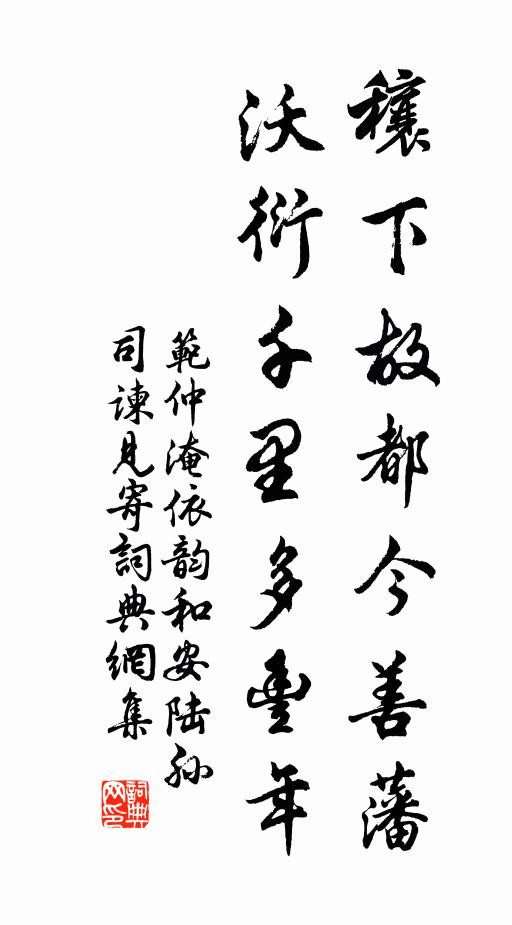 穰下故都今善藩
沃衍千里多豐年
範仲淹依韵和安陆孙
司諫見寄詞典網集
詞典网印